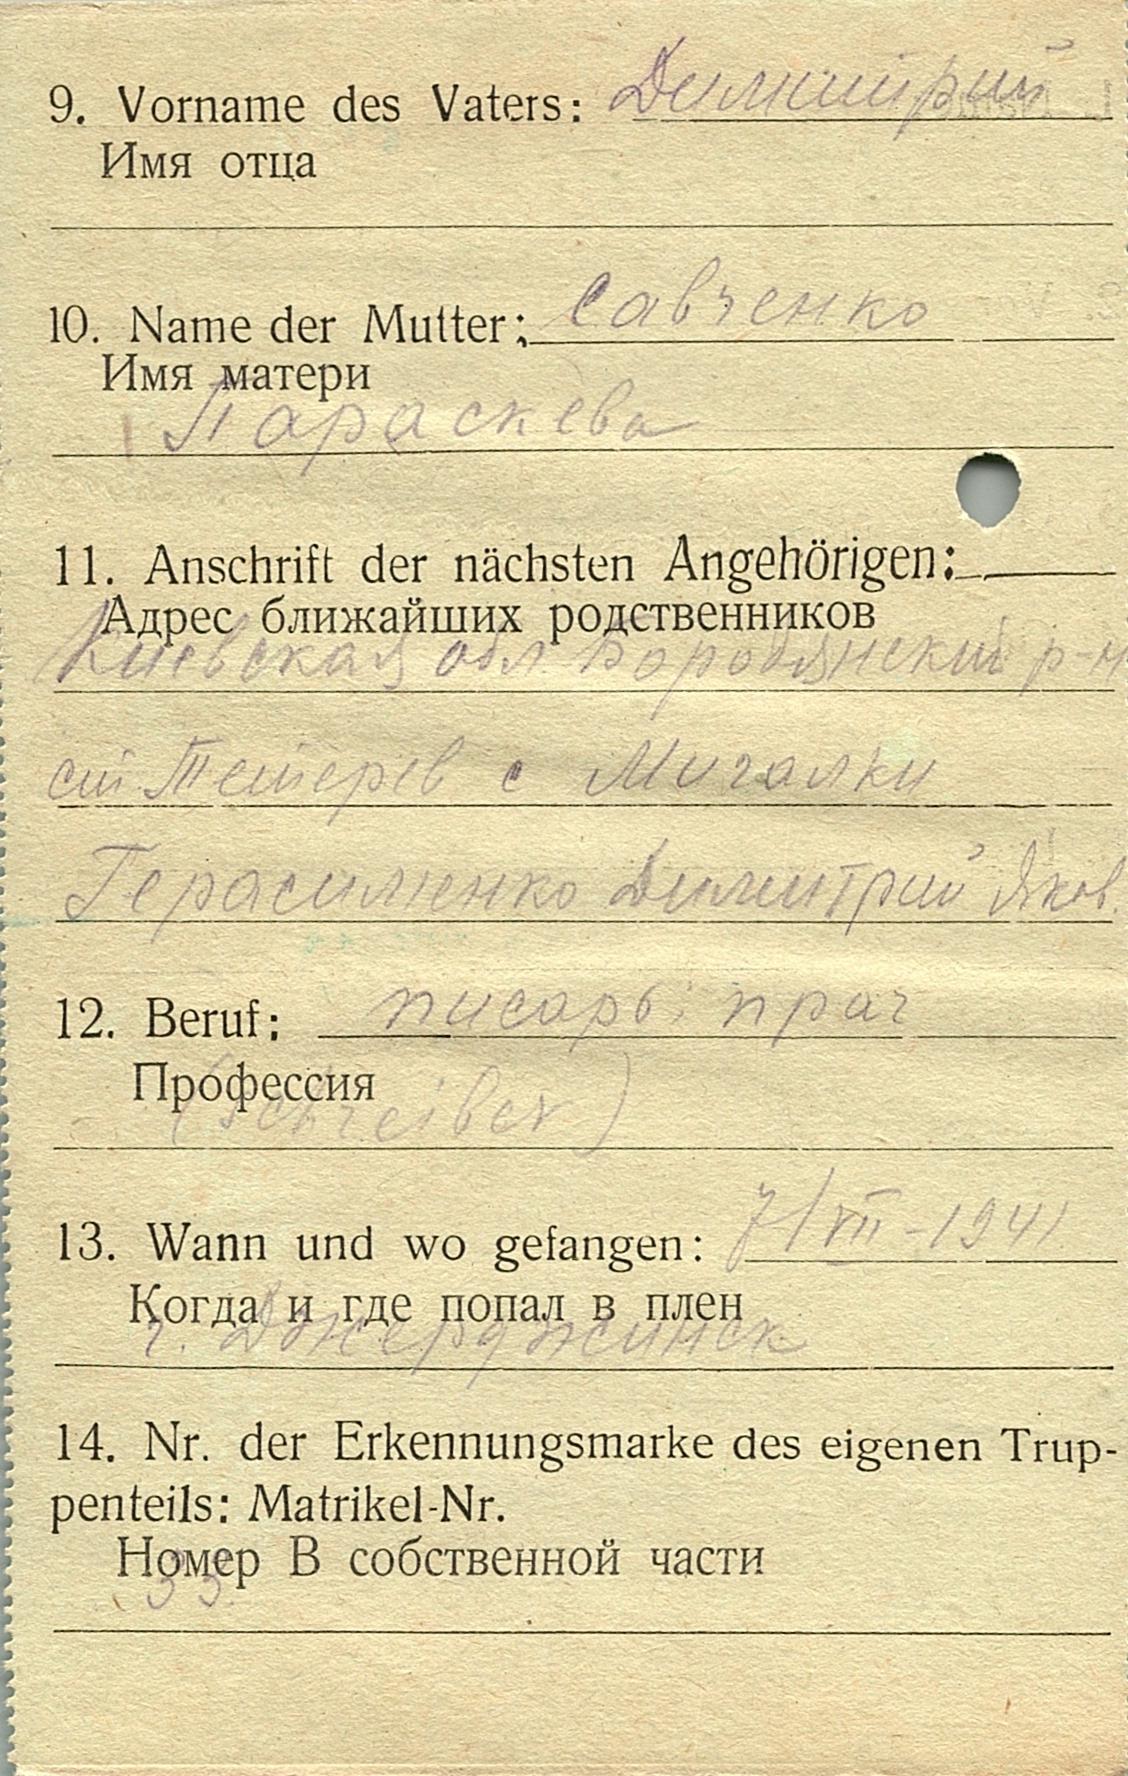 9. Vorname des Vaters: Димитрий
Имя отца
10. Name der Mutter: Савченко
Имя матери
Параскева
11. Anschrift der nächsten Angehörigen:
Адрес ближайших родственников
Киевская обл Бородянский р-н
ст Тетерев с Мигалки
Герасименко Димитрий Яков.
12. Beruf: писарь
Профессия
(Schreiber)
13. Wann und wo gefangen: 7/VII-1941
Когда и где попал в плен
г.
14. Nr. der Erkennungsmarke des eigenen Trup-
penteils: Matrikel-Nr.
Номер В собственной части
33